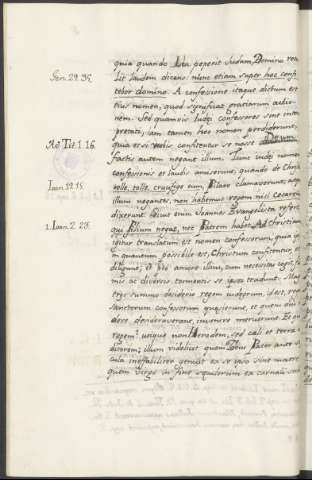 quia quando Lia peperit Judam, Domino red
Gen. 29. 35.
dit laudem dicens: nunc etiam super hoc confi
tebor domino. A confessione itaque dictum est
eius nomen, quod significat gratiarum actio
nem. Sed quamvis Judei confessores sint inter
pretati, iam tamen hoc nomen perdiderunt,
Ad Tit. 1. 16.
quia etsi confitentur se nosse Deum
factis autem negant illum. Tunc Judei nomen
confessionis et laudis amiserunt, quando de Christo
Ioan. 19. 15.
tolle, tolle, crucifige eum, Pilato clamaverunt, atque
illum negantes, non habemus regem nisi Cesarem
dixerunt. Sicut enim Joannes Evangelista refert,
1. Ioan. 2. 23.
qui filium negat, nec Patrem habet. Ad Christianos
igitur translatum est nomen confessorum, quia
in quantum possibile est, Christum confitentur, et
diligunt, et pro amore illius, cum necessitas cogit,
ac diversis tormentis se ipsos tradunt. Ma
summo desiderio regem judeorum, id est,
sanctorum confessorum quesierunt, et quem
dere desideraverant, invenire meruerunt.
regem utique non Herodem, sed celi et terre
illum videlicet quem Deus Pater ante
cula ineffabiliter genuit ex se ipso sine matre
quem virgo in fine seculorum ex carnali